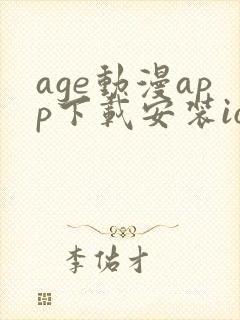 age動漫ap
p下載安裝io
李佑才